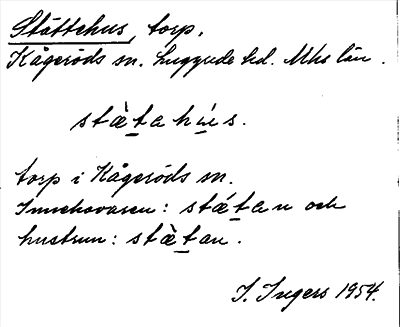 Stättehus, torp.
Kågeröds sn. Luggude hd. Mhs län.
stä̀tahús.
torp i Kågeröds sn.
Innehavaren: stä́tan och
hustrun: stä̀tan.
I. Ingers 1954.